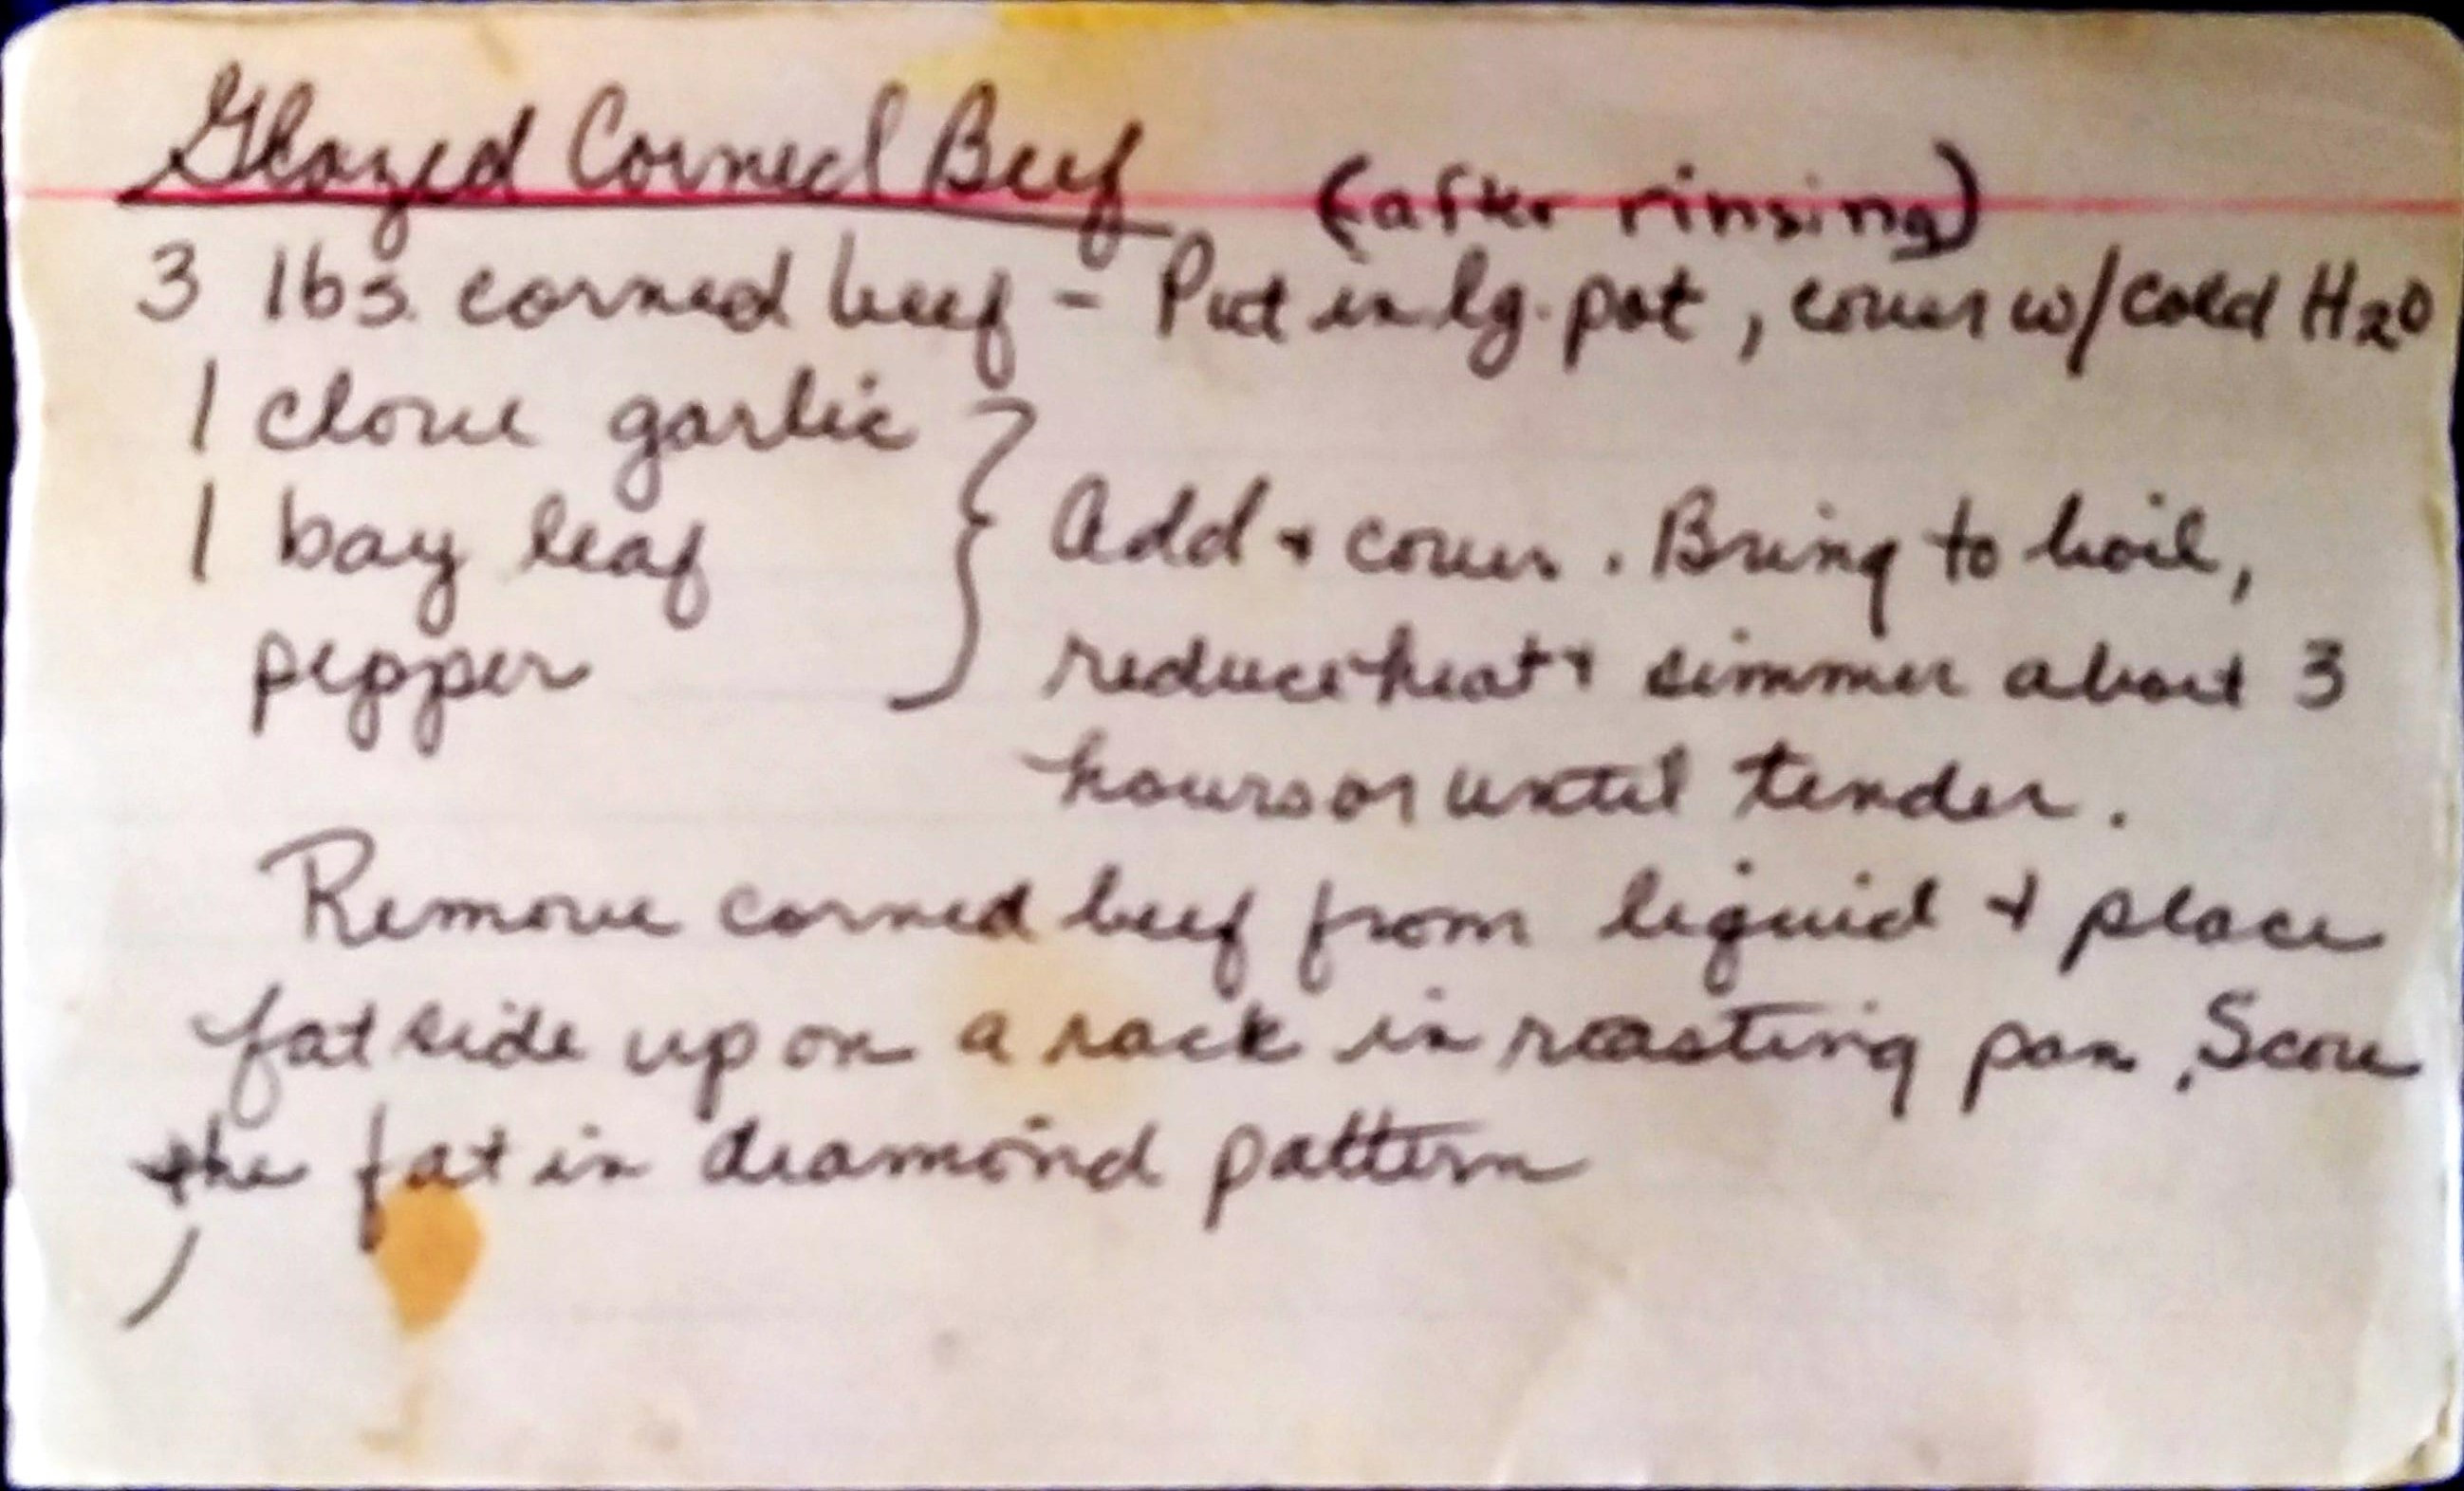 Glazed Corned Beef (after rinsing)
3 lbs. corned beef - Put in lg. pot, cover w/cold H2O
1 clove garlic
1 bay leaf } Add + cover. Bring to boil,
pepper reduce heat + simmer about 3
hours or until tender.
Remove corned beef from liquid + place
fat side up on a rack in roasting pan. Score
the fat in diamond pattern